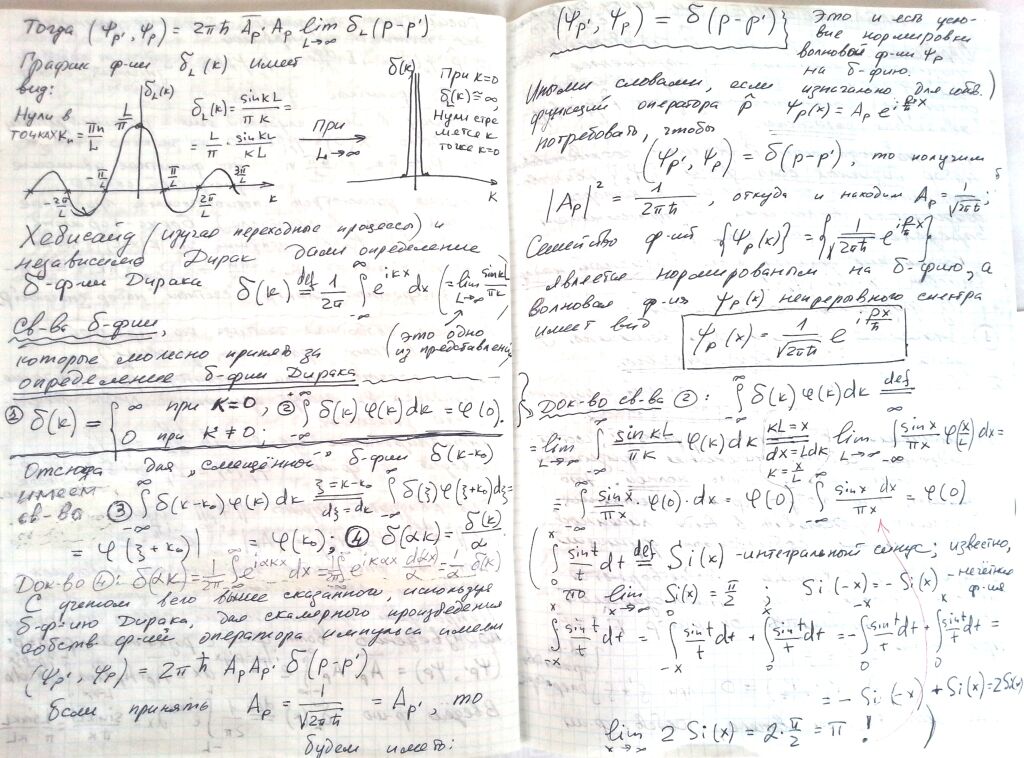 Тогда (Ψp', Ψp) = 2πħ Āp' Ap lim L→∞ δL(p-p')
График ф-ии δL(k) имеет
вид:
δL(k)
Нули в
точках Kn = πn/L
1/π
δL(k) = sin kL / πk =
= L/π · sin kL / kL
-2π/L
-π/L
π/L
2π/L
3π/L
k
При
L→∞
δ(k)
k
При k=0
δL(k) ≅ ∞,
Нули стре
мятся к
точке k=0
Хевисайд (изучая переходные процессы) и
независимо Дирак дали определение
δ-ф-ии Дирака δ(k) def= 1/2π ∫_{-∞}^{∞} e^{ikx} dx (= lim L→∞ sin kL / πk)
(это одно
из представлений
Св-ва δ-ф-ии,
которые можно принять за
определение δ-ф-ии Дирака
① δ(k) = { ∞ при K=0, ② ∫_{-∞}^{+∞} δ(k) φ(k) dk = φ(0).
0 при K≠0;
Отсюда для „смещённой" δ-ф-ии δ(k-k₀)
имеем
св-ва ③ ∫_{-∞}^{∞} δ(k-k₀) φ(k) dk ξ=k-k₀ = dξ=dk ∫_{-∞}^{∞} δ(ξ) φ(ξ+k₀) dξ =
= φ(ξ+k₀)| = φ(k₀); ④ δ(αk) = δ(k)/α
Док-во ④: δ(αk) = 1/2π ∫_{-∞}^{∞} e^{iαkx} dx = 1/2π ∫_{-∞}^{∞} e^{ikαx} dαx/α = 1/α δ(k)
С учетом всего выше сказанного, используя
δ-ф-ию Дирака, для скалярного произведения
собств. ф-ий оператора импульса имеем
(Ψp', Ψp) = 2πħ Ap Ap' δ(p-p')
Если принять Ap = 1/√2πħ = Ap', то
будем иметь:
(Ψp', Ψp) = δ(p-p') }
Это и есть усло-
вие нормировки
волновой ф-ии Ψp
на δ-ф-ию.
Иными словами, если изначально для собств.
функций оператора p̂ Ψp(x) = Ap e^{i p/ħ x}
потребовать, чтобы
(Ψp', Ψp) = δ(p-p'), то получим
|Ap|² = 1/2πħ, откуда и находим Ap = 1/√2πħ;
Семейство ф-ий {Ψp(x)} = {1/√2πħ e^{i p/ħ x}}
является нормированным на δ-ф-ию, а
волновая ф-ия Ψp(x) непрерывного спектра
имеет вид
Ψp(x) = 1/√2πħ e^{i px/ħ}
Док-во св-ва ②: ∫_{-∞}^{∞} δ(k) φ(k) dk def=
= lim L→∞ ∫_{-∞}^{∞} sin kL / πk φ(k) dk kL=x = dx=Ldk k=x/L lim L→∞ ∫_{-∞}^{∞} sin x / πx φ(x/L) dx =
= ∫_{-∞}^{∞} sin x / πx · φ(0) · dx = φ(0) ∫_{-∞}^{∞} sin x dx / πx = φ(0)
( ∫_0^x sin t / t dt def= Si(x) - интегральный синус; известно,
что lim x→∞ Si(x) = π/2 ; Si(-x) = -Si(x) - нечётная
ф-ия
∫_{-x}^{x} sin t / t dt = ∫_{-x}^{0} sin t / t dt + ∫_0^x sin t / t dt = -∫_0^{-x} sin t / t dt + ∫_0^x sin t / t dt =
= -Si(-x) + Si(x) = 2Si(x)
lim x→∞ 2 Si(x) = 2·π/2 = π ! )